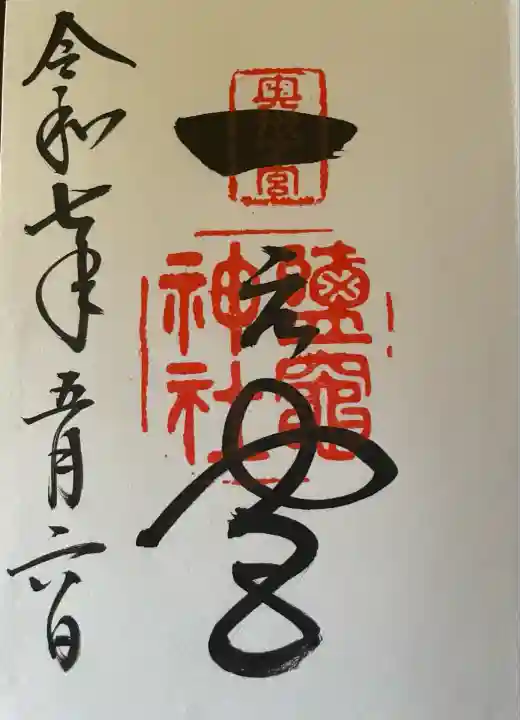 一之宮
鹽竈
神社
令和七年五月六日